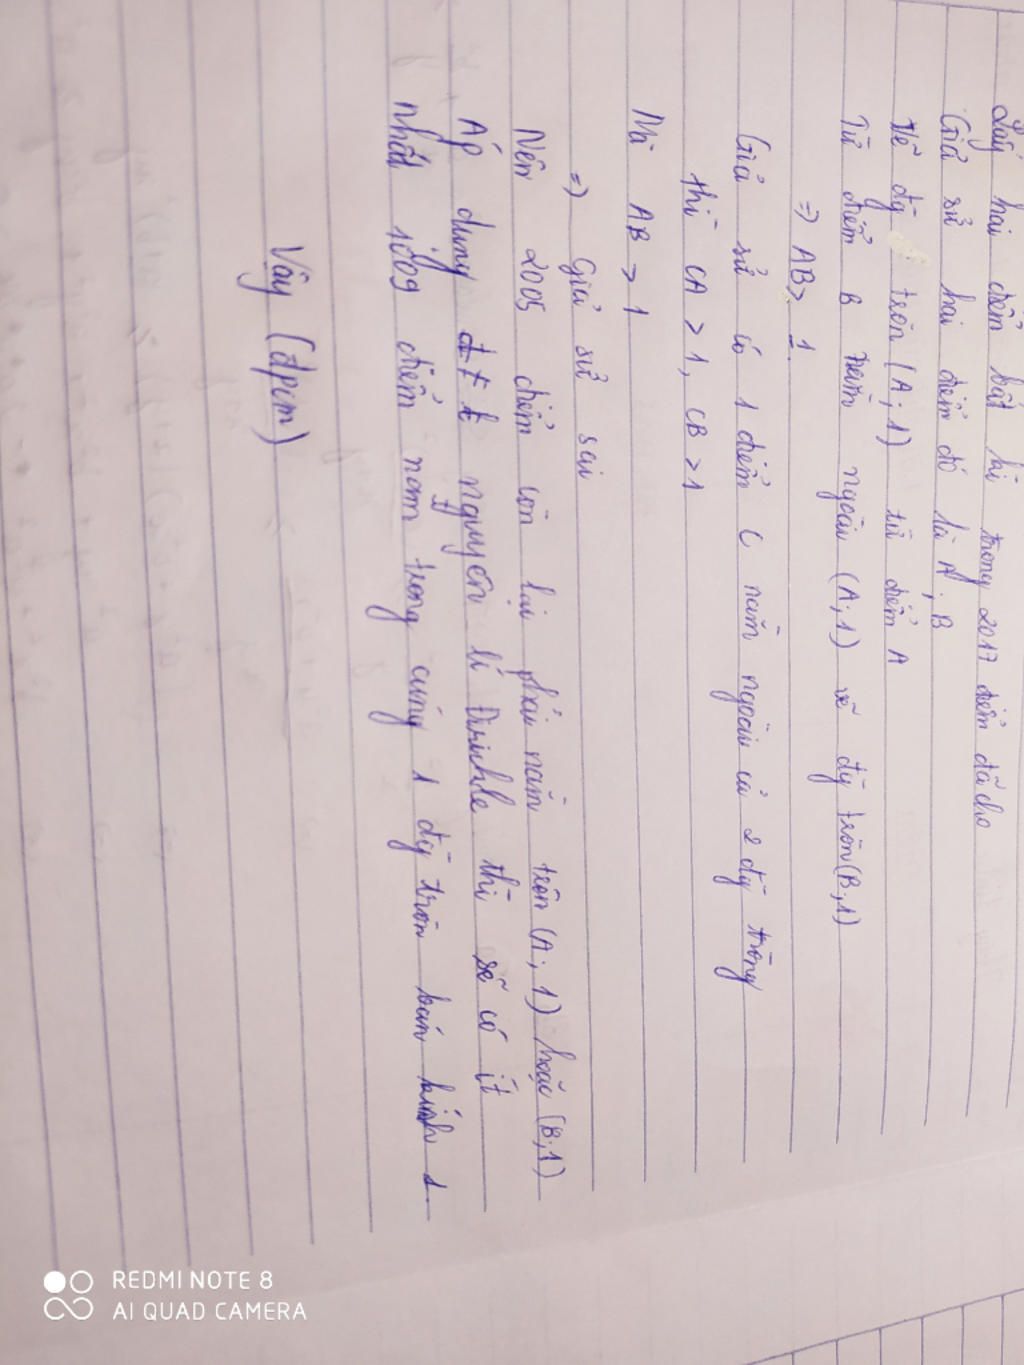 Lấy hai điểm bất kì trong 2017 điểm đã cho
Giả sử hai điểm đó là A, B
Vẽ đg tròn (A; 1) từ điểm A
Từ điểm B nằm ngoài (A; 1) vẽ đg tròn (B; 1)
=> AB > 1
Giả sử có 1 điểm C nằm ngoài cả 2 đg tròng
thì CA > 1, CB > 1
Mà AB > 1
=> Giả sử sai
Nên 2005 điểm còn lại phải nằm trên (A; 1) hoặc (B; 1)
Áp dụng nguyên lí Dirichle thì sẽ có ít
nhất 1009 điểm nằm trong cùng 1 đg tròn bán kính 1
Vậy (đpcm)
REDMI NOTE 8
AI QUAD CAMERA